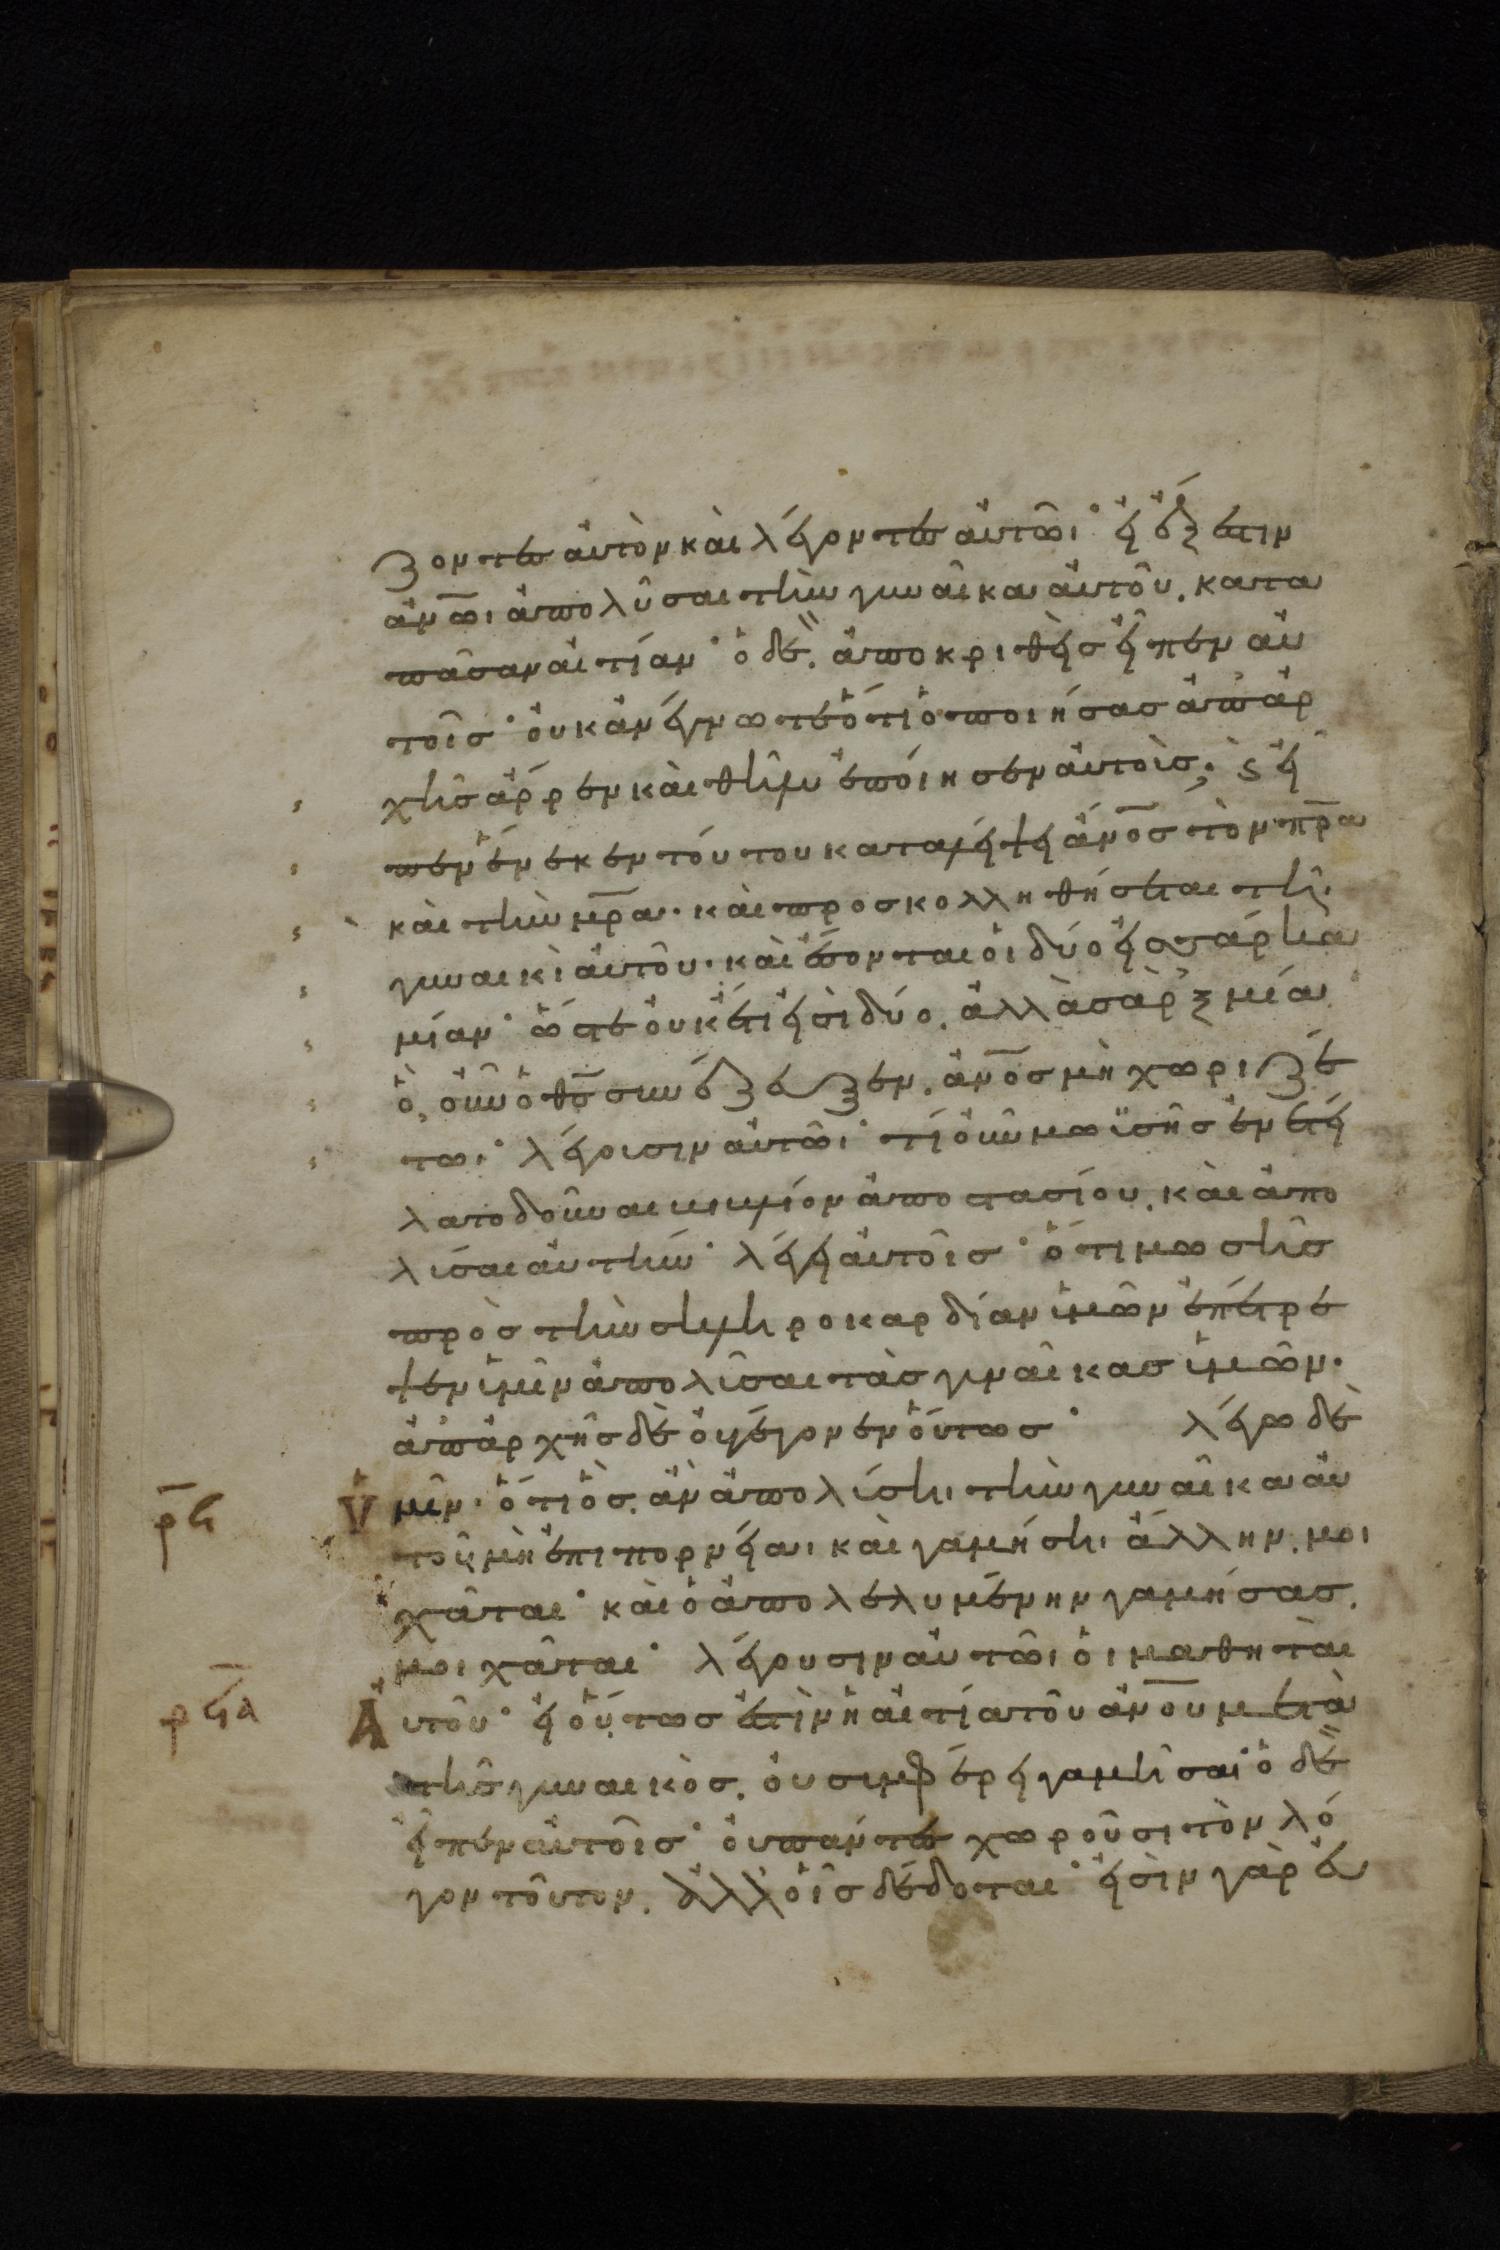 ζοντες αὐτὸν καὶ λέγοντες αὐτῶι· εἰ ἔξεστιν
ἀν̅ω̅ι ἀπολῦσαι τὴν γυναῖκα αὐτοῦ. κατα
πᾶσαν αἰτίαν· ὁ δὲ. ἀποκριθεὶς εἶπεν αὐ
τοῖς· οὐκ ἀνέγνωτε ὅτι ὁ ποιήσας ἀπ' ἀρ
χῆς ἄρρεν καὶ θῆλυ ἐποίησεν αὐτοὺς; ϛ εἶ
πεν ἕνεκεν τούτου καταλείψει ἄν̅ο̅ς τὸν π̅ρ̅α
καὶ τὴν μ̅ρ̅α· καὶ προσκολληθήσεται τῆι
γυναικὶ αὐτοῦ· καὶ ἔσονται οἱ δύο εἰς σάρκα
μίαν· ὥστε οὐκέτι εἰσὶ δύο. ἀλλὰ σὰρξ μία
ὃ, οὖν ὁ θ̅ς̅ συνέζευξεν. ἄν̅ο̅ς μὴ χωριζέ
τω· λέγουσιν αὐτῶι· τί οὖν μωϊσῆς ἐνετεί
λατο δοῦναι βιβλίον ἀποστασίου. καὶ ἀπο
λύσαι αὐτήν· λέγει αὐτοῖς· ὅτι μωσῆς
πρὸς τὴν σκληροκαρδίαν ὑμῶν ἐπέτρε
ψεν ὑμῖν ἀπολῦσαι τὰς γυναῖκας ὑμῶν·
ἀπ' ἀρχῆς δὲ οὐ γέγονεν οὕτως· λέγω δὲ
ρ̅ϟ ὑμῖν· ὅτι ὃς. ἂν ἀπολύσηι τὴν γυναῖκα αὐ
τοῦ μὴ ἐπι πορνείαι καὶ γαμήσηι ἄλλην. μοι
χᾶται· καὶ ὁ ἀπολελυμένην γαμήσας.
μοιχᾶται· λέγουσιν αὐτῶι οἱ μαθηταὶ
ρϟ̅α αὐτοῦ· εἰ οὕτως ἐστὶν ἡ αἰτία τοῦ ἀν̅ο̅υ μετὰ
τῆς γυναικὸς. οὐ συμφέρει γαμῆσαι· ὁ δὲ
εἶπεν αὐτοῖς· οὐ πάντες χωροῦσι τὸν λό
γον τοῦτον. ἀλλ' οἷς δέδοται· εἰσὶν γὰρ εὐ